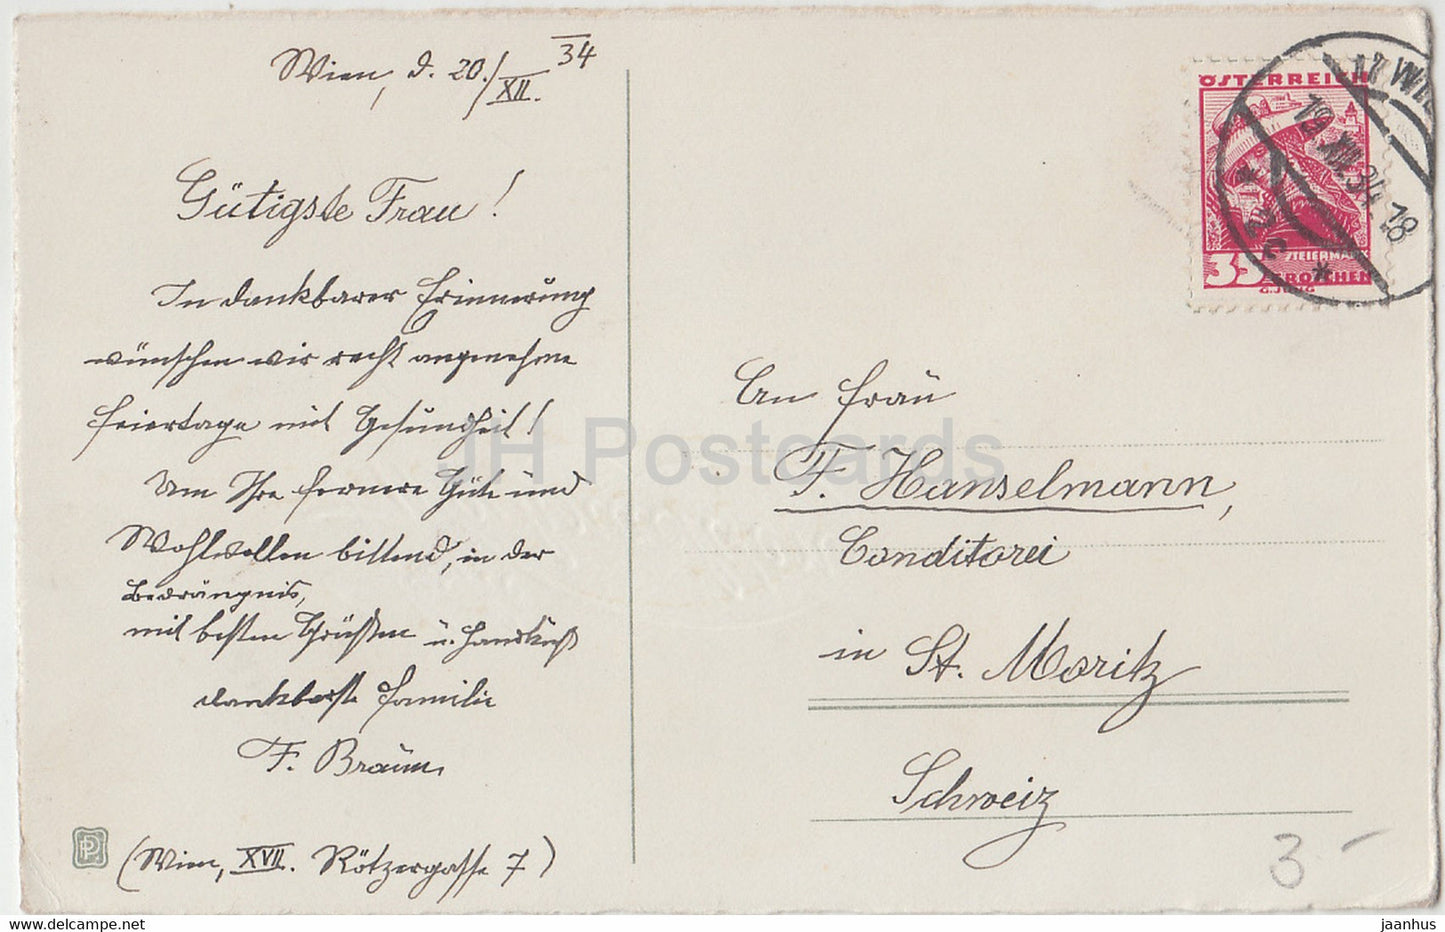 Wien, d. 20./XII. 34
Gütigste Frau!
In dankbarer Erinnerung
wünschen wir recht angenehme
Feiertage mit Gesundheit!
Um Ihre fernere Güte und
Wohlwollen bittend, in der
Bedrängnis,
mit besten Grüßen u. Handkuß
dankbarste Familie
F. Braun
(Wien, XVII. Rötzergasse 7)
ÖSTERREICH
STEIERMARK
35 GROSCHEN
G. JUNG
17 WIEN
19.XII.34 18
* 2c *
An Frau
F. Hanselmann,
Conditorei
in St. Moritz
Schweiz
3 -
PP.
JH Postcards
www.delcampe.net
jaanhus